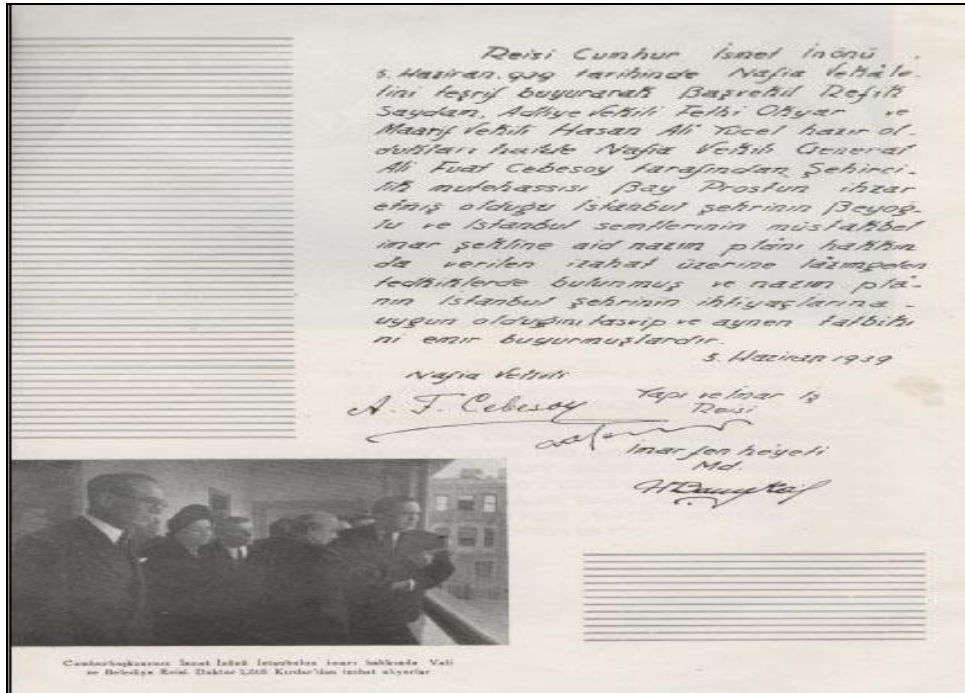 Reisi Cumhur İsmet İnönü
5. Haziran. 939 tarihinde Nafia Vekâle-
tini teşrif buyurarak Başvekil Refik
Saydam, Adliye Vekili Fethi Okyar ve
Maarif Vekili Hasan Ali Yücel hazır ol-
dukları halde Nafia Vekili General
Ali Fuat Cebesoy tarafından, Şehirci-
lik mutehassısı Bay Prostun ihzar
etmiş olduğu İstanbul şehrinin Beyoğ-
lu ve İstanbul semtlerinin müstakbel
imar şekline aid nazım plânı hakkın
da verilen izahat üzerine lâzımgelen
tedkiklerde bulunmuş ve nazım plâ-
nın İstanbul şehrinin ihtiyaçlarına
uygun olduğını tasvip ve aynen tatbiki
ni emir buyurmuşlardır.
5. Haziran 1939
Nafia Vekili
A. F. Cebesoy
Yapı ve İmar İş
Reisi
İmar fen heyeti
Md.
Cumhurbaşkanımız İsmet İnönü İstanbulun imarı hakkında Vali
ve Belediye Reisi Doktor Lûtfi Kırdar'dan izahat alıyorlar